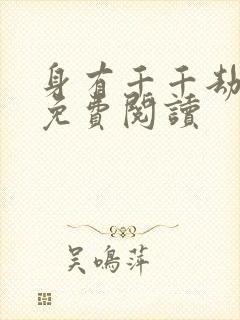 身有千千劫
免費閱讀
吴鳴萍